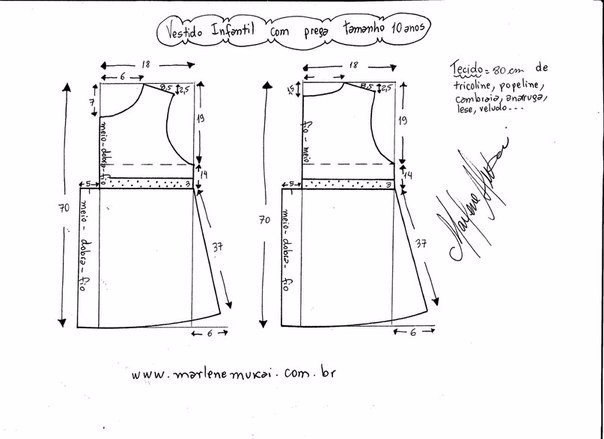 Vestido Infantil com prega tamanho 10 anos
Tecido = 80 cm de
tricoline, popeline,
cambraia, anarruga,
lese, veludo...
18
6
8,5
2,5
7
19
meio-dobra-fio
14
5
3
70
meio-dobra-fio
37
6
18
8,5
2,5
19
fio-meio
14
5
3
70
meio-dobra-fio
37
6
www.marlenemukai.com.br